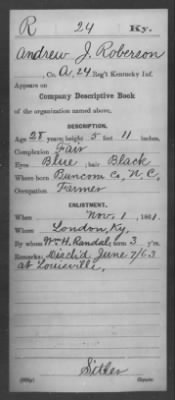 R 24 Ky.
Andrew J. Roberson
, Co. A, 24 Reg't Kentucky Inf.
Appears on
Company Descriptive Book
of the organization named above.
DESCRIPTION.
Age 28 years; height 5 feet 11 inches.
Complexion Fair
Eyes Blue; hair Black
Where born Buncom Co, N.C.
Occupation Farmer
ENLISTMENT.
When Nov. 1, 1861.
Where London, Ky.
By whom Wm H. Randal; term 3 y'rs.
Remarks: Disc'd June 7/63
at Louisville.
Copyist.